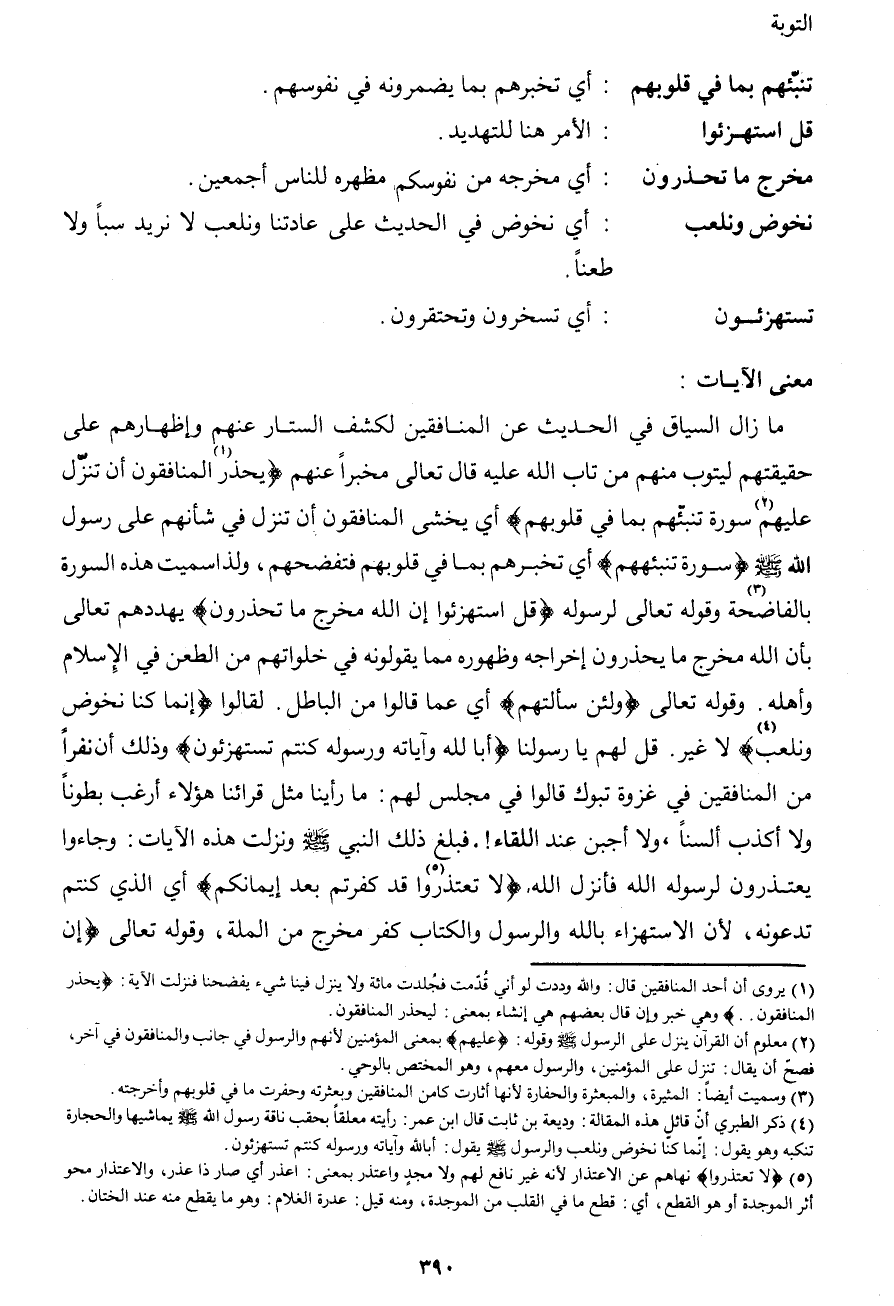 التوبة
تنبّئهم بما في قلوبهم : أي تخبرهم بما يضمرونه في نفوسهم .
قل استهـزئوا : الأمر هنا للتهديد .
مخرج ما تحـذرون : أي مخرجه من نفوسكم مظهره للناس أجمعين .
نخوض ونلعب : أي نخوض في الحديث على عادتنا ونلعب لا نريد سباً ولا
طعناً .
تستهزئـون : أي تسخرون وتحتقرون .
معنى الآيـات :
ما زال السياق في الحـديث عن المنـافقين لكشف الستـار عنهم وإظهـارهم على
حقيقتهم ليتوب منهم من تاب الله عليه قال تعالى مخبراً عنهم ﴿يحذر(١) المنافقون أن تنزّل
عليهم(٢) سورة تنبّئهم بما في قلوبهم﴾ أي يخشى المنافقون أن تنزل في شأنهم على رسول
الله ﷺ ﴿سـورة تنبئههم﴾ أي تخبـرهم بمـا في قلوبهم فتفضحهم ، ولذا سميت هذه السورة
بالفاضحة(٣) وقوله تعالى لرسوله ﴿قل استهزئوا إن الله مخرج ما تحذرون﴾ يهددهم تعالى
بأن الله مخرج ما يحذرون إخراجه وظهوره مما يقولونه في خلواتهم من الطعن في الإسلام
وأهله . وقوله تعالى ﴿ولئن سألتهم﴾ أي عما قالوا من الباطل . لقالوا ﴿إنما كنا نخوض
ونلعب(٤)﴾ لا غير . قل لهم يا رسولنا ﴿أبا لله وآياته ورسوله كنتم تستهزئون﴾ وذلك أن نفراً
من المنافقين في غزوة تبوك قالوا في مجلس لهم : ما رأينا مثل قرائنا هؤلاء أرغب بطوناً
ولا أكذب ألسناً ،ولا أجبن عند اللقاء! .فبلغ ذلك النبي ﷺ ونزلت هذه الآيات : وجاءوا
يعتـذرون لرسوله الله فأنزل الله، ﴿لا تعتذروا(٥) قد كفرتم بعد إيمانكم﴾ أي الذي كنتم
تدعونه ، لأن الاستهزاء بالله والرسول والكتاب كفر مخرج من الملة ، وقوله تعالى ﴿إن
(١) يروى أن أحد المنافقين قال : والله وددت لو أني قُدّمت فجُلدت مائة ولا ينزل فينا شيء يفضحنا فنزلت الآية : ﴿يحذر
المنافقون . . ﴾ وهي خبر وإن قال بعضهم هي إنشاء بمعنى : ليحذر المنافقون .
(٢) معلوم أن القرآن ينزل على الرسول ﷺ وقوله : ﴿عليهم﴾ بمعنى المؤمنين لأنهم والرسول في جانب والمنافقون في آخر،
فصحّ أن يقال : تنزل على المؤمنين، والرسول معهم، وهو المختص بالوحي .
(٣) وسميت أيضاً : المثيرة، والمبعثرة والحفارة لأنها أثارت كامن المنافقين وبعثرته وحفرت ما في قلوبهم وأخرجته .
(٤) ذكر الطبري أنّ قائل هذه المقالة : وديعة بن ثابت قال ابن عمر : رأيته معلقاً بحقب ناقة رسول الله ﷺ يماشيها والحجارة
تنكبه وهو يقول : إنّما كنّا نخوض ونلعب والرسول ﷺ يقول : أبالله وآياته ورسوله كنتم تستهزئون .
(٥) ﴿لا تعتذروا﴾ نهاهم عن الاعتذار لأنه غير نافع لهم ولا مجدٍ واعتذر بمعنى : اعذر أي صار ذا عذر، والاعتذار محو
أثر الموجدة أو هو القطع ، أي : قطع ما في القلب من الموجدة، ومنه قيل : عدرة الغلام : وهو ما يقطع منه عند الختان .
٣٩٠